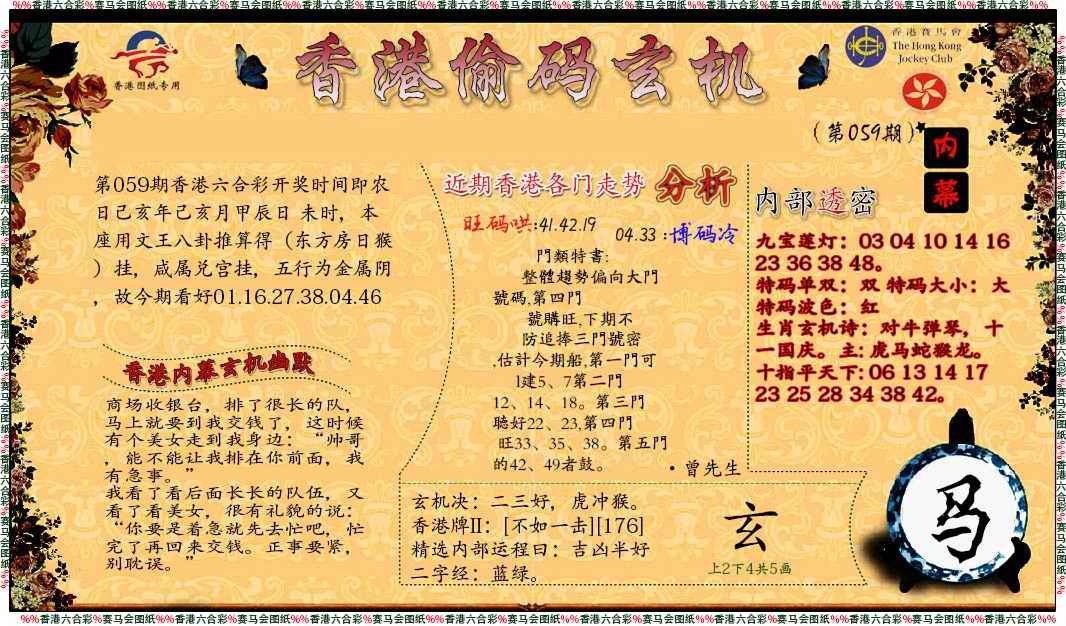 %%香港六合彩%赛马会图纸%%香港六合彩%赛马会图纸%%香港六合彩%赛马会图纸%%香港六合彩%赛马会图纸%%香港六合彩%赛马会图纸%%香港六合彩%赛马会图纸%%香港六合彩%%
香港图纸专用
香港偷码玄机
香港賽馬會
The Hong Kong
Jockey Club
(第059期)
内幕
第059期香港六合彩开奖时间即农
日己亥年己亥月甲辰日 未时，本
座用文王八卦推算得（东方房日猴
）挂，咸属兑宫挂，五行为金属阴
，故今期看好01.16.27.38.04.46
香港内幕玄机幽默
商场收银台，排了很长的队，
马上就要到我交钱了，这时候
有个美女走到我身边：“帅哥
，能不能让我排在你前面，我
有急事。”
我看了看后面长长的队伍，又
看了看美女，很有礼貌的说：
“你要是着急就先去忙吧，忙
完了再回来交钱。正事要紧，
别耽误。”
近期香港各门走势 分析
旺码哄:41.42.19
04.33 :博码冷
門類特書:
整體趨勢偏向大門
號碼,第四門
號購旺,下期不
防追捧三門號密
,估計今期船,第一門可
l建5、7第二門
12、14、18。第三門
聴好22、23,第四門
旺33、35、38。第五門
的42、49者鼓。
·曾先生
内部透密
九宝莲灯：03 04 10 14 16
23 36 38 48。
特码单双：双 特码大小：大
特码波色：红
生肖玄机诗：对牛弹琴，十
一国庆。主:虎马蛇猴龙。
十指平天下: 06 13 14 17
23 25 28 34 38 42。
玄机决：二三好，虎冲猴。
香港牌II：[不如一击][176]
精选内部运程曰：吉凶半好
二字经：蓝绿。
玄
上2下4共5画
马
%%香港六合彩%赛马会图纸%%香港六合彩%赛马会图纸%%香港六合彩%赛马会图纸%%香港六合彩%赛马会图纸%%香港六合彩%赛马会图纸%%香港六合彩%赛马会图纸%%香港六合彩%%